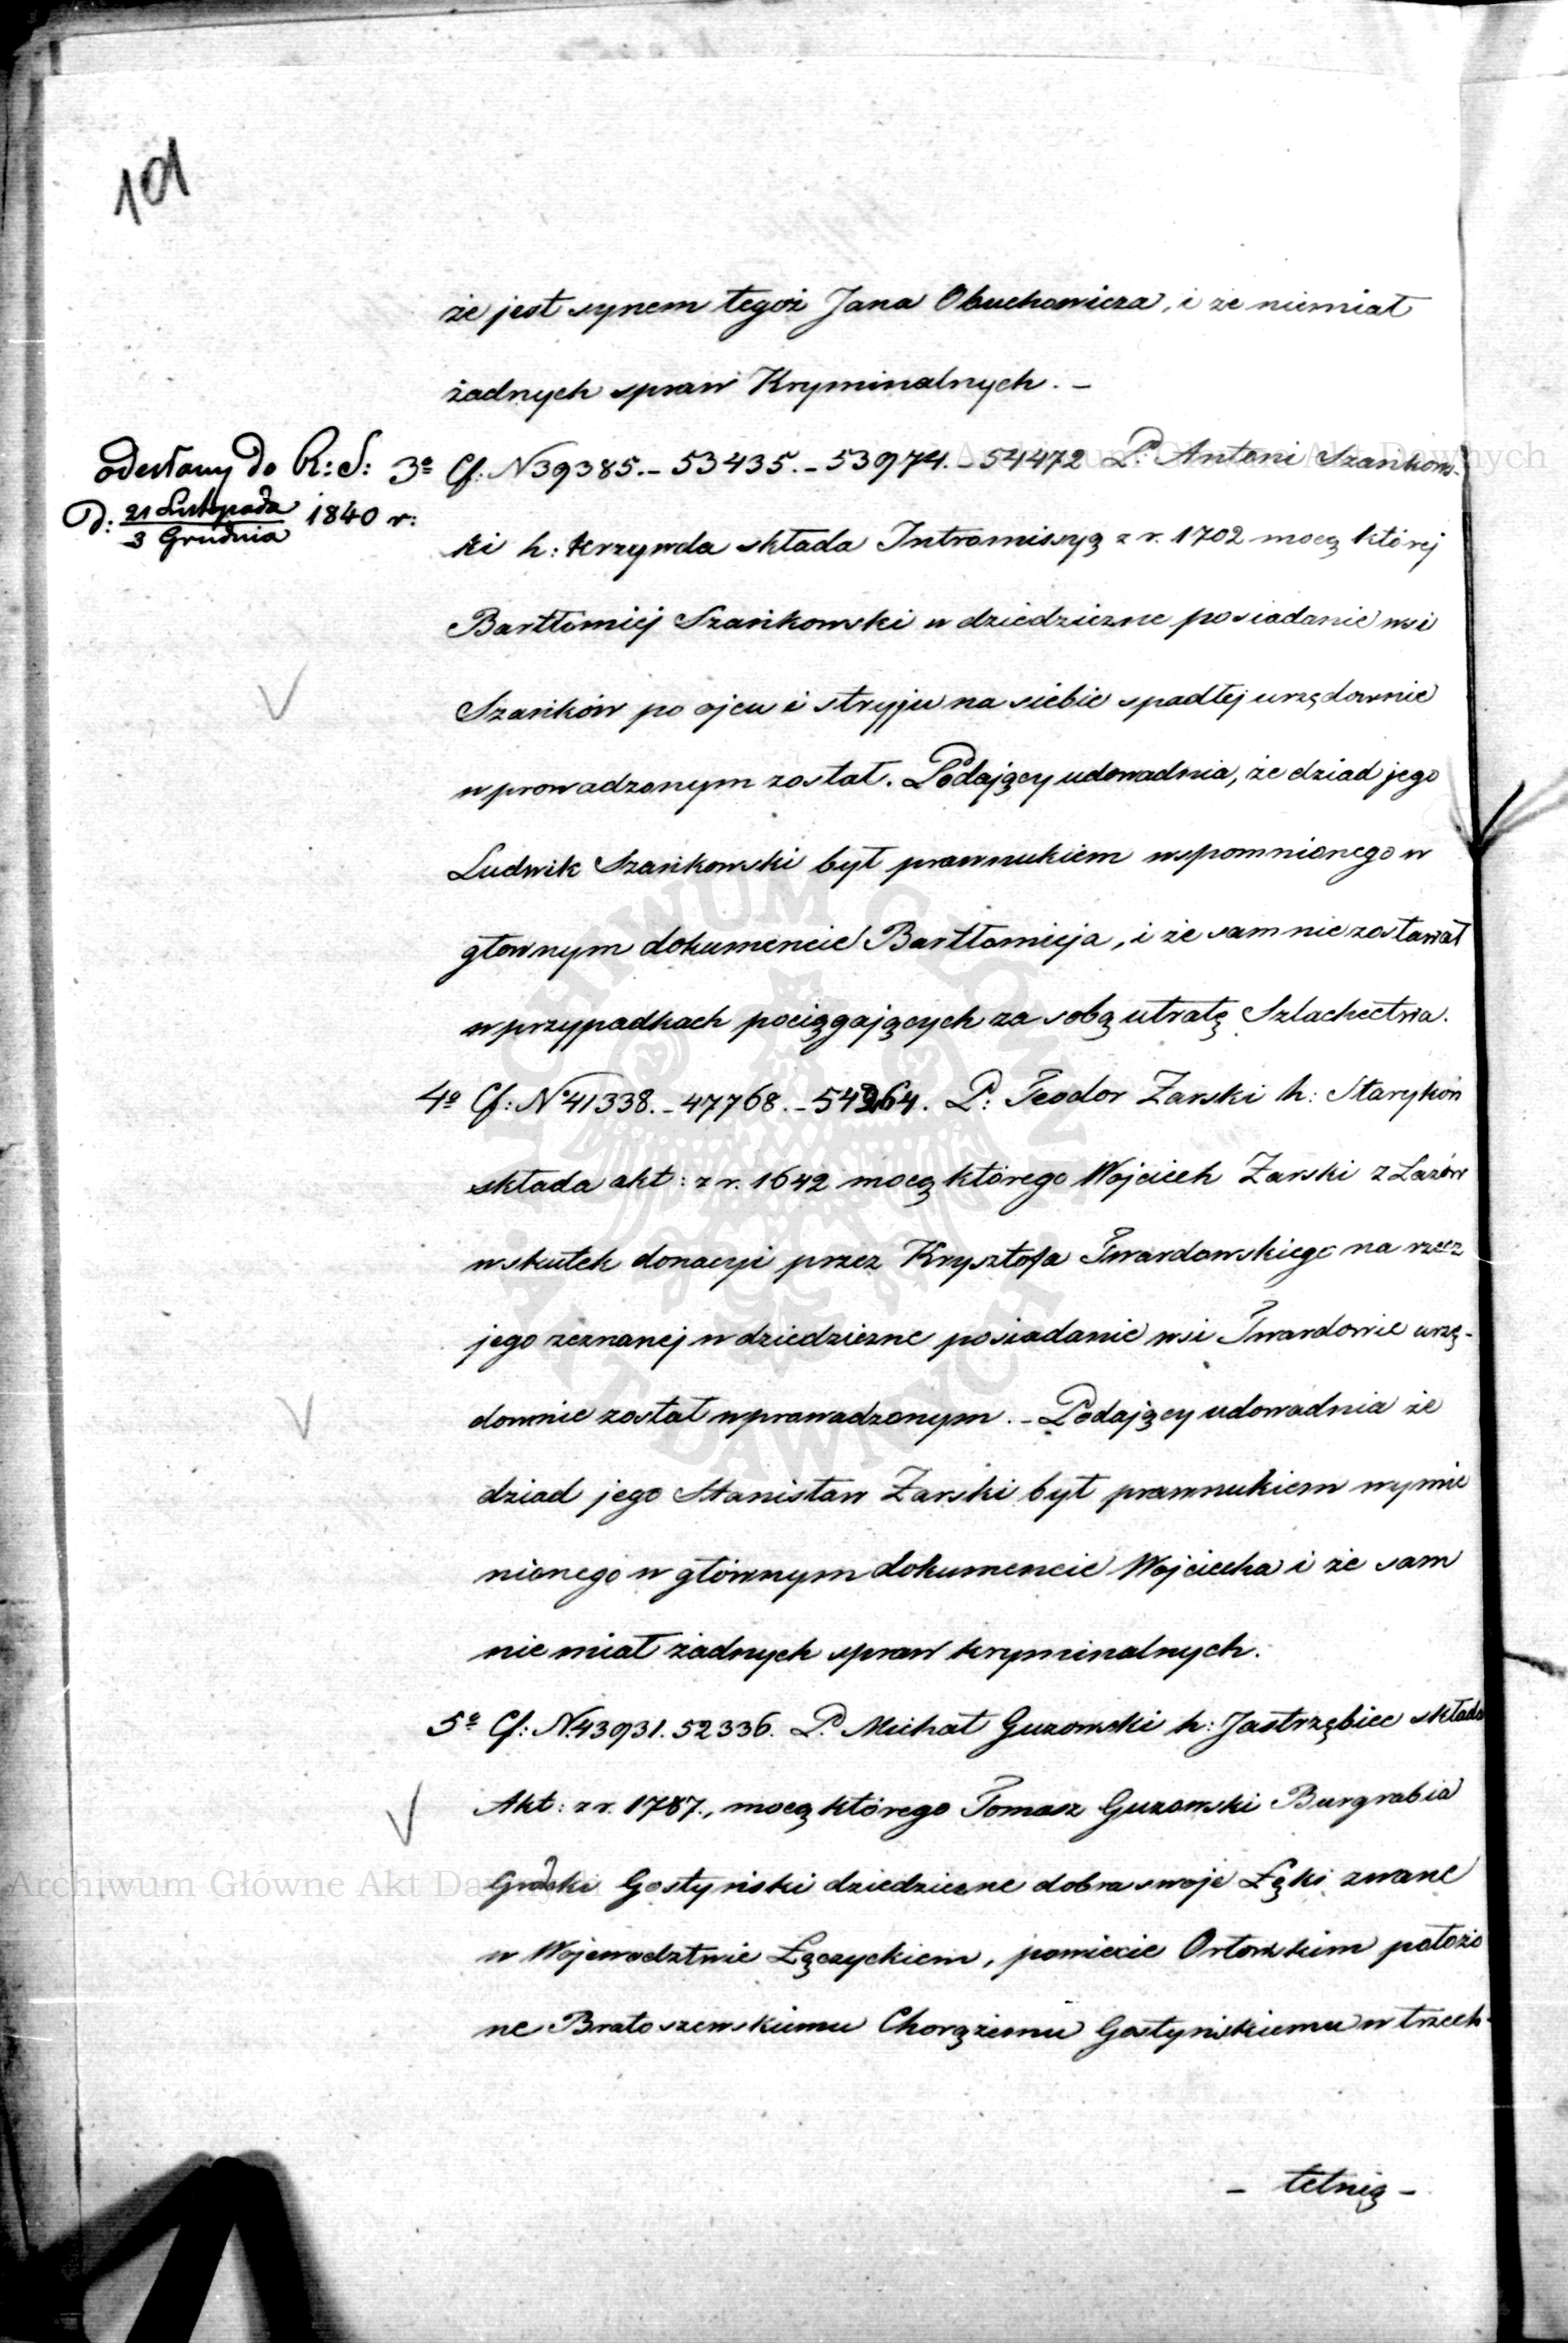 101
że jest synem tegoż Jana Obuchowicza, i że niemiał
żadnych spraw Kryminalnych. –
odesłany do R: S:
d: 21 Listopada / 3 Grudnia 1840 r:
3º Cf: N 39385. – 53435. – 53974. – 54472 P: Antoni Szańkows-
ki h: Krzywda składa Intromissyą z r. 1702 mocą której
Bartłomiej Szańkowski w dziedziczne posiadanie wsi
Szańków po ojcu i stryju na siebie spadłej urzędownie
wprowadzonym został. Podający udowadnia, że dziad jego
Ludwik Szańkowski był prawnukiem wspomnionego w
głownym dokumencie Bartłomieja, i że sam nie zostawał
w przypadkach pociągających za sobą utratę Szlachectwa.
4º Cf: N 41338. – 47768. – 54264. P: Teodor Żarski h: Starykoń
składa akt: z r. 1642 mocą którego Wojciech Żarski z Łazów
wskutek donacyi przez Krysztofa Twardowskiego na rzecz
jego zeznanej w dziedziczne posiadanie wsi Twardowie urzę-
downie został wprowadzonym. – Podający udowadnia że
dziad jego Stanisław Żarski był prawnukiem wymie
nionego w głównym dokumencie Wojciecha i że sam
nie miał żadnych spraw kryminalnych.
5º Cf: N. 43931. 52336. P. Michał Guzowski h: Jastrzębiec składa
Akt: z r. 1787., mocą którego Tomasz Guzowski Burgrabia
Grodzki Gostyński dziedziczne dobra swoje Łęki zwane
w Wojewodztwie Łęczyckiem, powiecie Orłowskim położo
ne Bratoszewskiemu Chorążemu Gostyńskiemu w trzech-
– letnią –
Archiwum Główne Akt Dawnych
Archiwum Główne Akt Dawnych
ARCHIWUM GŁÓWNE AKT DAWNYCH